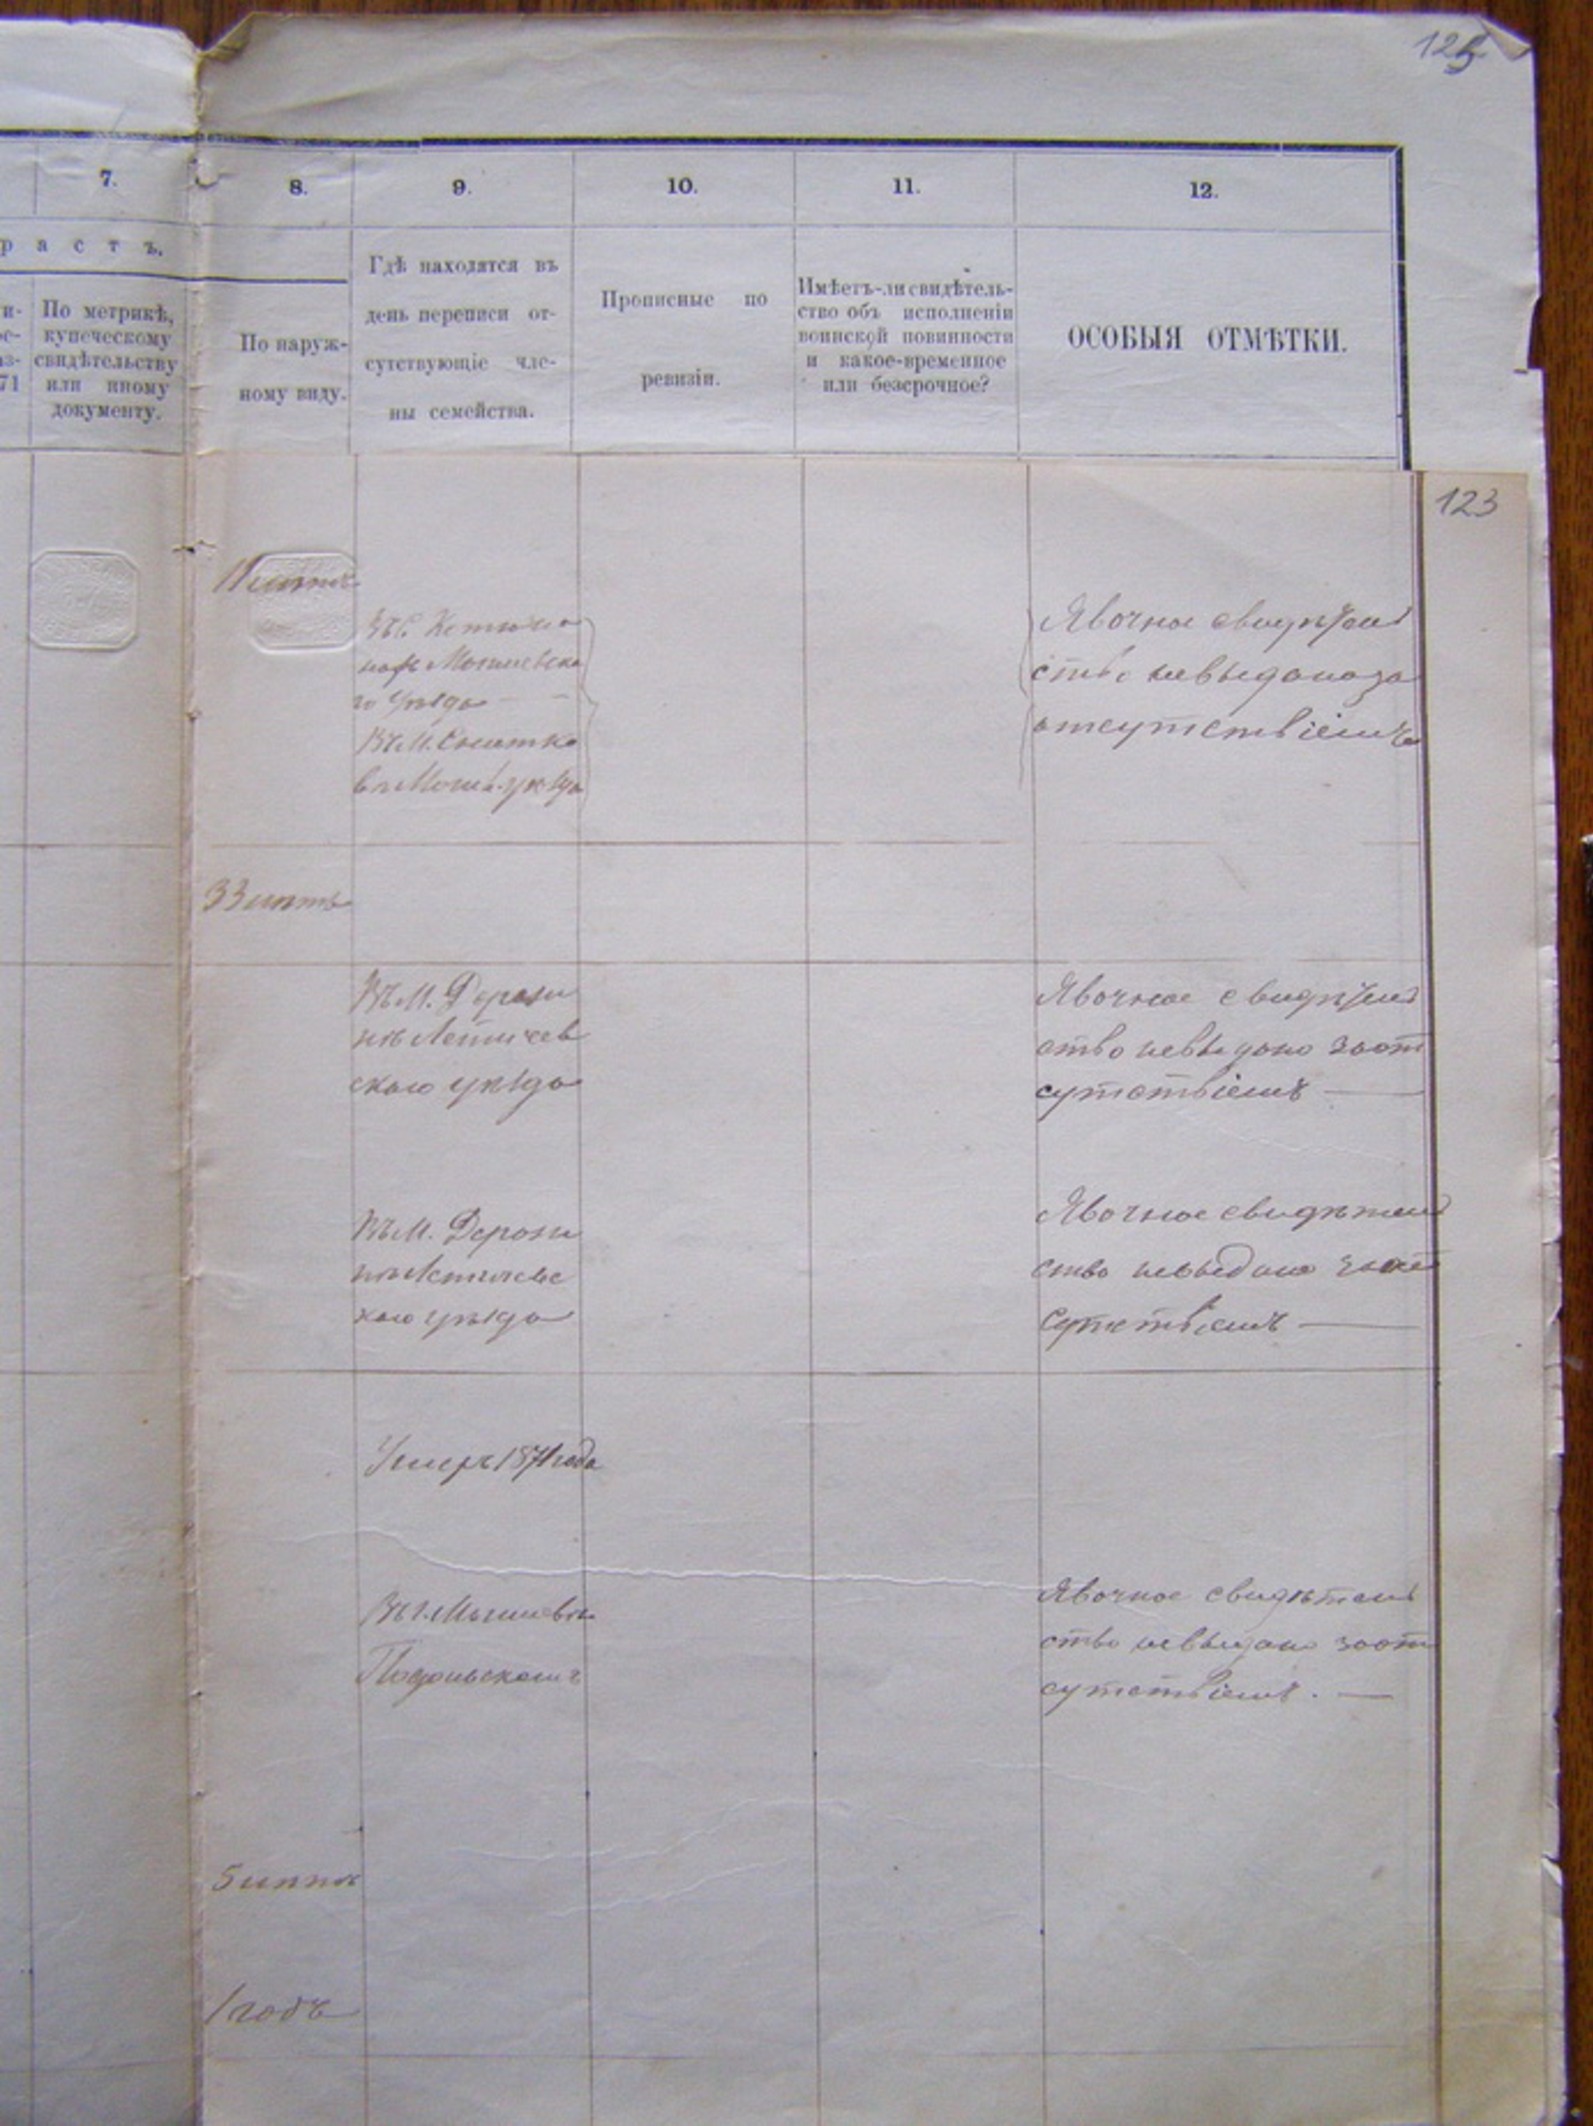 125
7.
8.
9.
10.
11.
12.
р а с т ъ.
По метрикѣ,
купеческому
свидѣтельству
или иному
документу.
71
По наруж-
ному виду.
Гдѣ находятся въ
день переписи от-
сутствующіе чле-
ны семейства.
Прописные по
ревизіи.
Имѣетъ-ли свидѣтель-
ство объ исполненіи
воинской повинности
и какое-временное
или безсрочное?
ОСОБЫЯ ОТМѢТКИ.
123
11 лѣтъ
Въ С.
Могилевска
го уѣзда
Въ М. Снитко
вѣ Могил. уѣзда
Явочное свидѣтель
ство невыдано за
отсутствіемъ
33 лѣтъ
Въ М. Дераж
нѣ Летичев
скаго уѣзда
Явочное свидѣтель
ство невыдано за от
сутствіемъ —
Въ М. Дераж
нѣ Летичевс
каго уѣзда
Явочное свидѣтель
ство невыдано за от
сутствіемъ —
Умеръ 1871 года
Въ г. Могилевѣ
Подольскомъ
Явочное свидѣтель
ство невыдано за от
сутствіемъ. —
5 лѣтъ
1 годъ